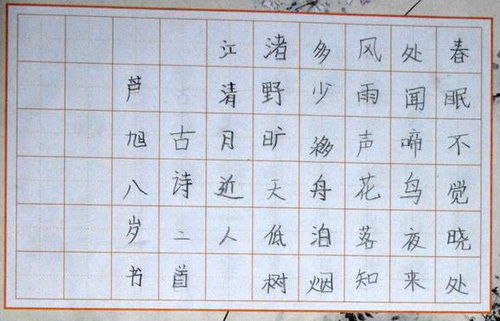 春眠不觉晓处
处闻啼鸟夜来
风雨声花落知
多少移舟泊烟
渚野旷天低树
江清月近人
古诗二首
芦旭八岁书